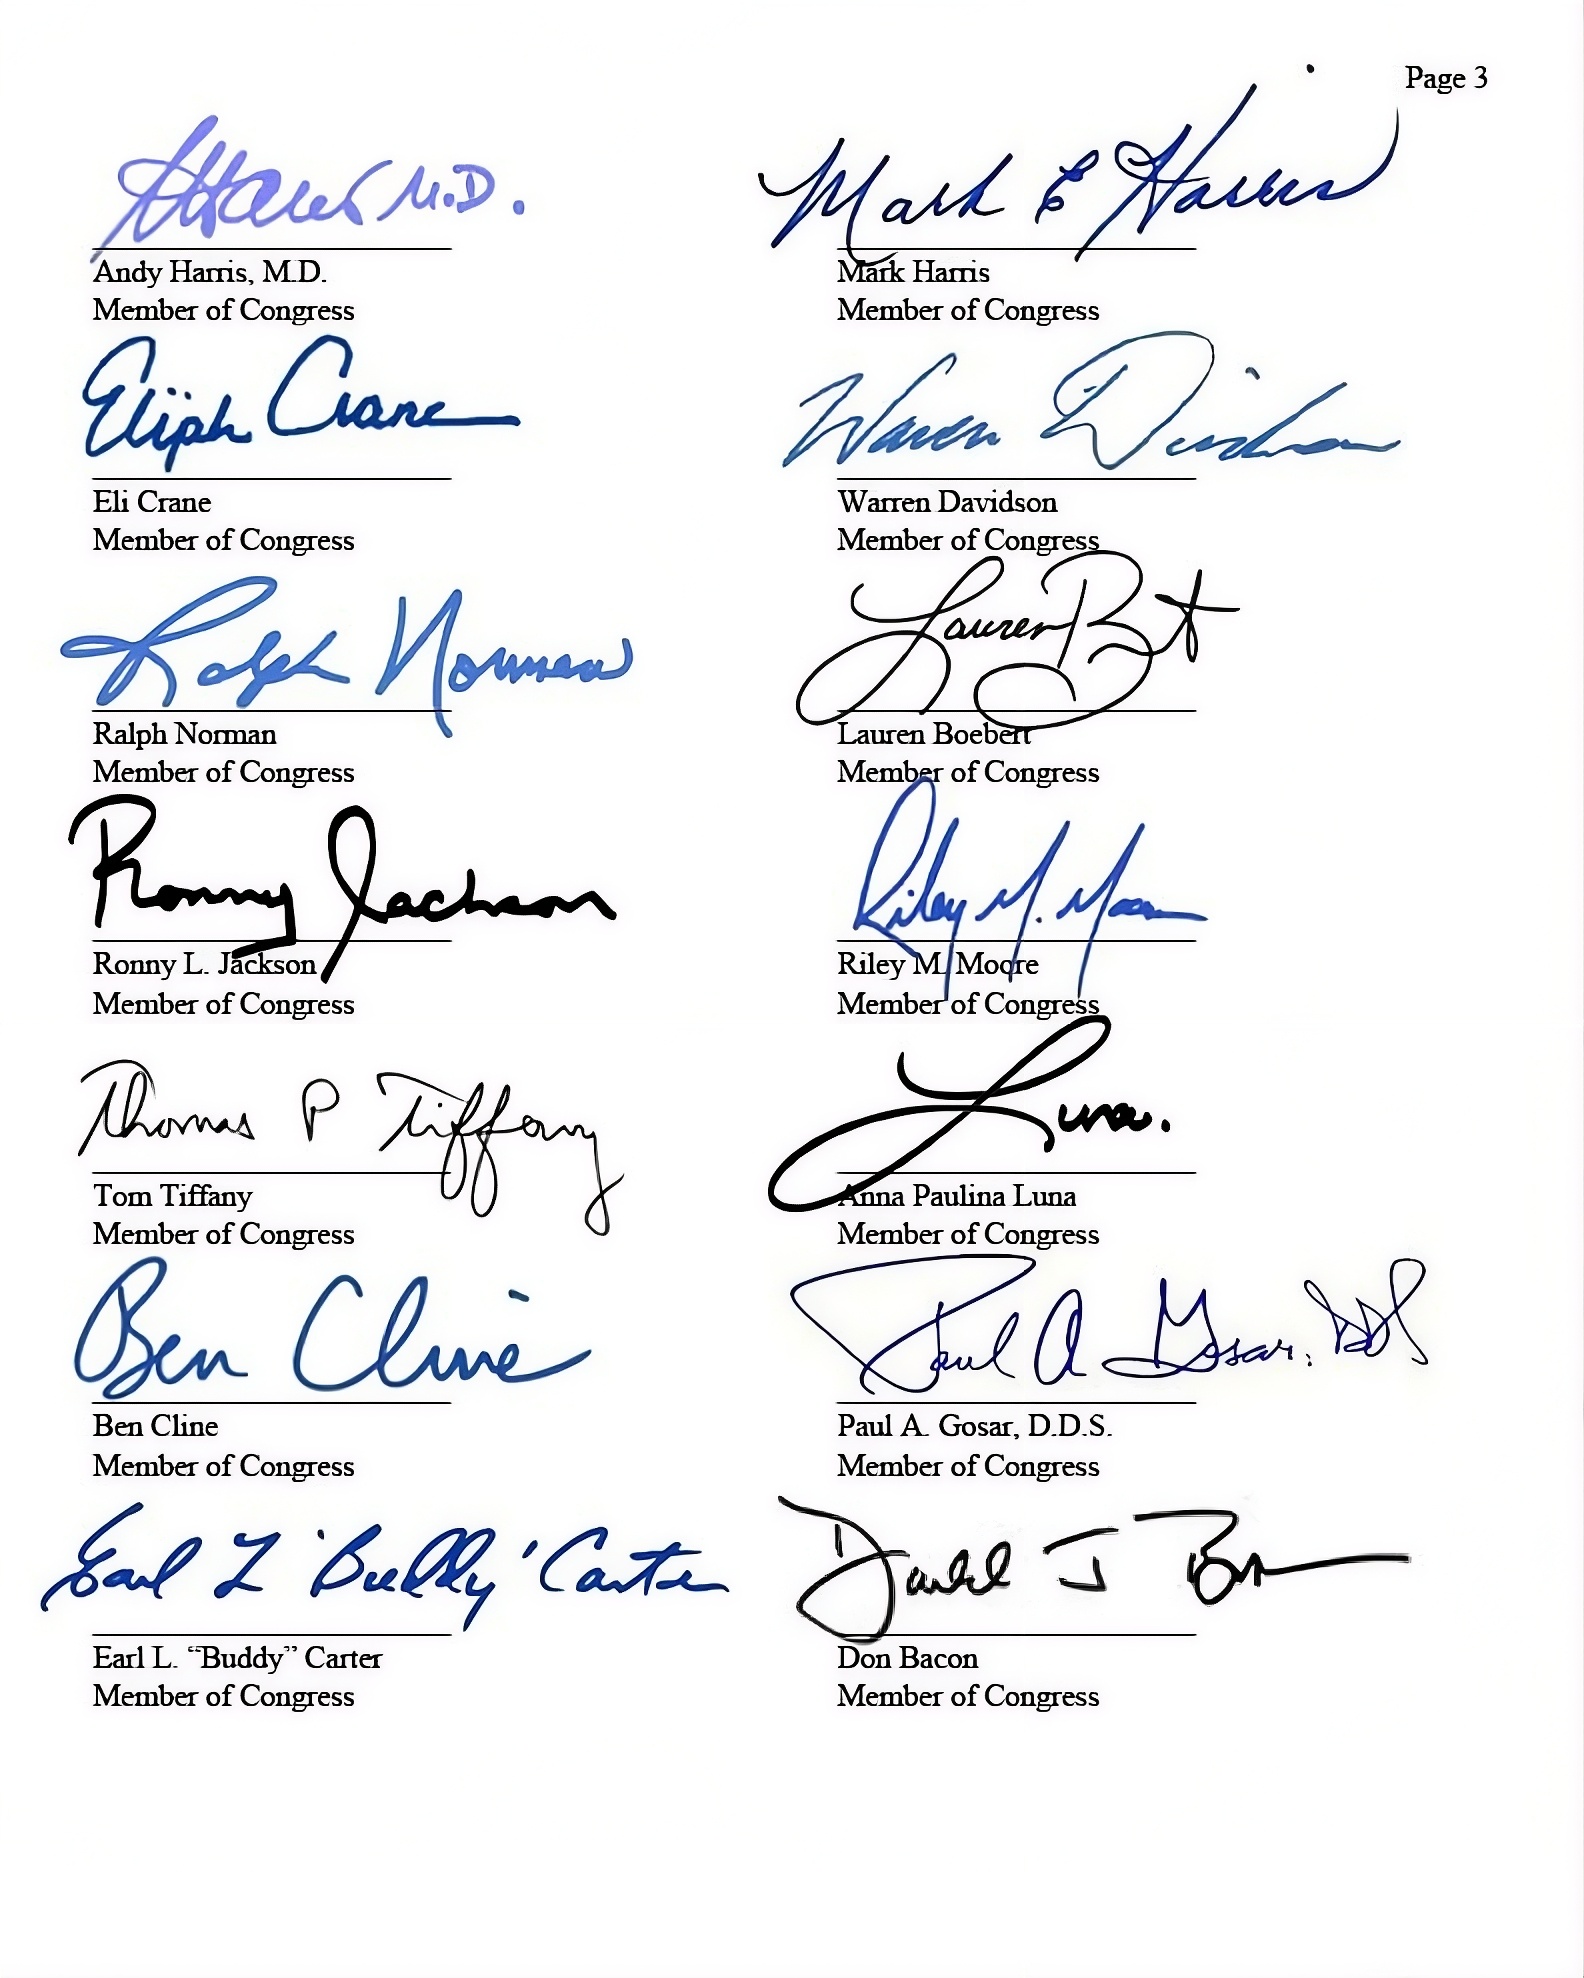 Page 3
Harris M.D.
Mark E Harris
Andy Harris, M.D.
Mark Harris
Member of Congress
Member of Congress
Elijah Crane
Warren Davidson
Eli Crane
Warren Davidson
Member of Congress
Member of Congress
Ralph Norman
Lauren
Ralph Norman
Lauren Boebert
Member of Congress
Member of Congress
Ronny Jackson
Riley M. Moore
Ronny L. Jackson
Riley M. Moore
Member of Congress
Member of Congress
Thomas P Tiffany
Luna.
Tom Tiffany
Anna Paulina Luna
Member of Congress
Member of Congress
Ben Cline
Paul A Gosar, DDS
Ben Cline
Paul A. Gosar, D.D.S.
Member of Congress
Member of Congress
Earl L "Buddy" Carter
J
Earl L. “Buddy” Carter
Don Bacon
Member of Congress
Member of Congress